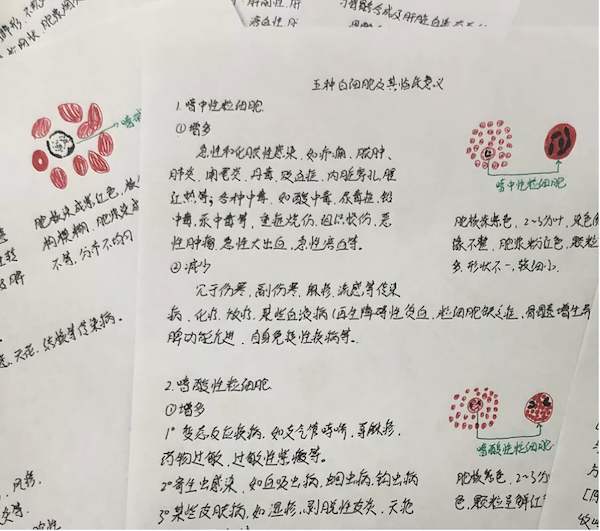 肝周性.肝
五种白细胞及其临床意义
1.嗜中性粒细胞
①增多
急性和化脓性感染.如疖痈、脓肿、
肺炎、阑尾炎、丹毒、败血症、内脏穿孔、猩
红热等;各种中毒.如酸中毒、尿毒症、铅
中毒、汞中毒等、重症烧伤、组织损伤、恶
性肿瘤、急性大出血、急性溶血等.
②减少
见于伤寒、副伤寒、麻疹、流感等传染
病、化疗、放疗、某些血液病(再生障碍性贫血、粒细胞缺乏症、骨髓增生异
脾功能亢进、自身免疫性疾病等。
嗜中性粒细胞
胞核染紫色, 2~5分叶, 染色
缘不整, 胞浆粉红色, 颗粒
多.形状不一,较细小.
2.嗜酸性粒细胞
①增多
1°变态反应疾病,如支气管哮喘、荨麻疹、
药物过敏、过敏性紫癜等。
2°寄生虫感染、如血吸虫病、蛔虫病、钩虫病
3°某些皮肤病,如湿疹、剥脱性皮炎、天疱
嗜酸性粒细胞
胞核紫色, 2~3分
色,颗粒呈鲜红
胞核染成紫红色,核
构模糊, 胞浆染成
不等,分布不均匀
天花、结核等传染病。
风疹、
炎等.